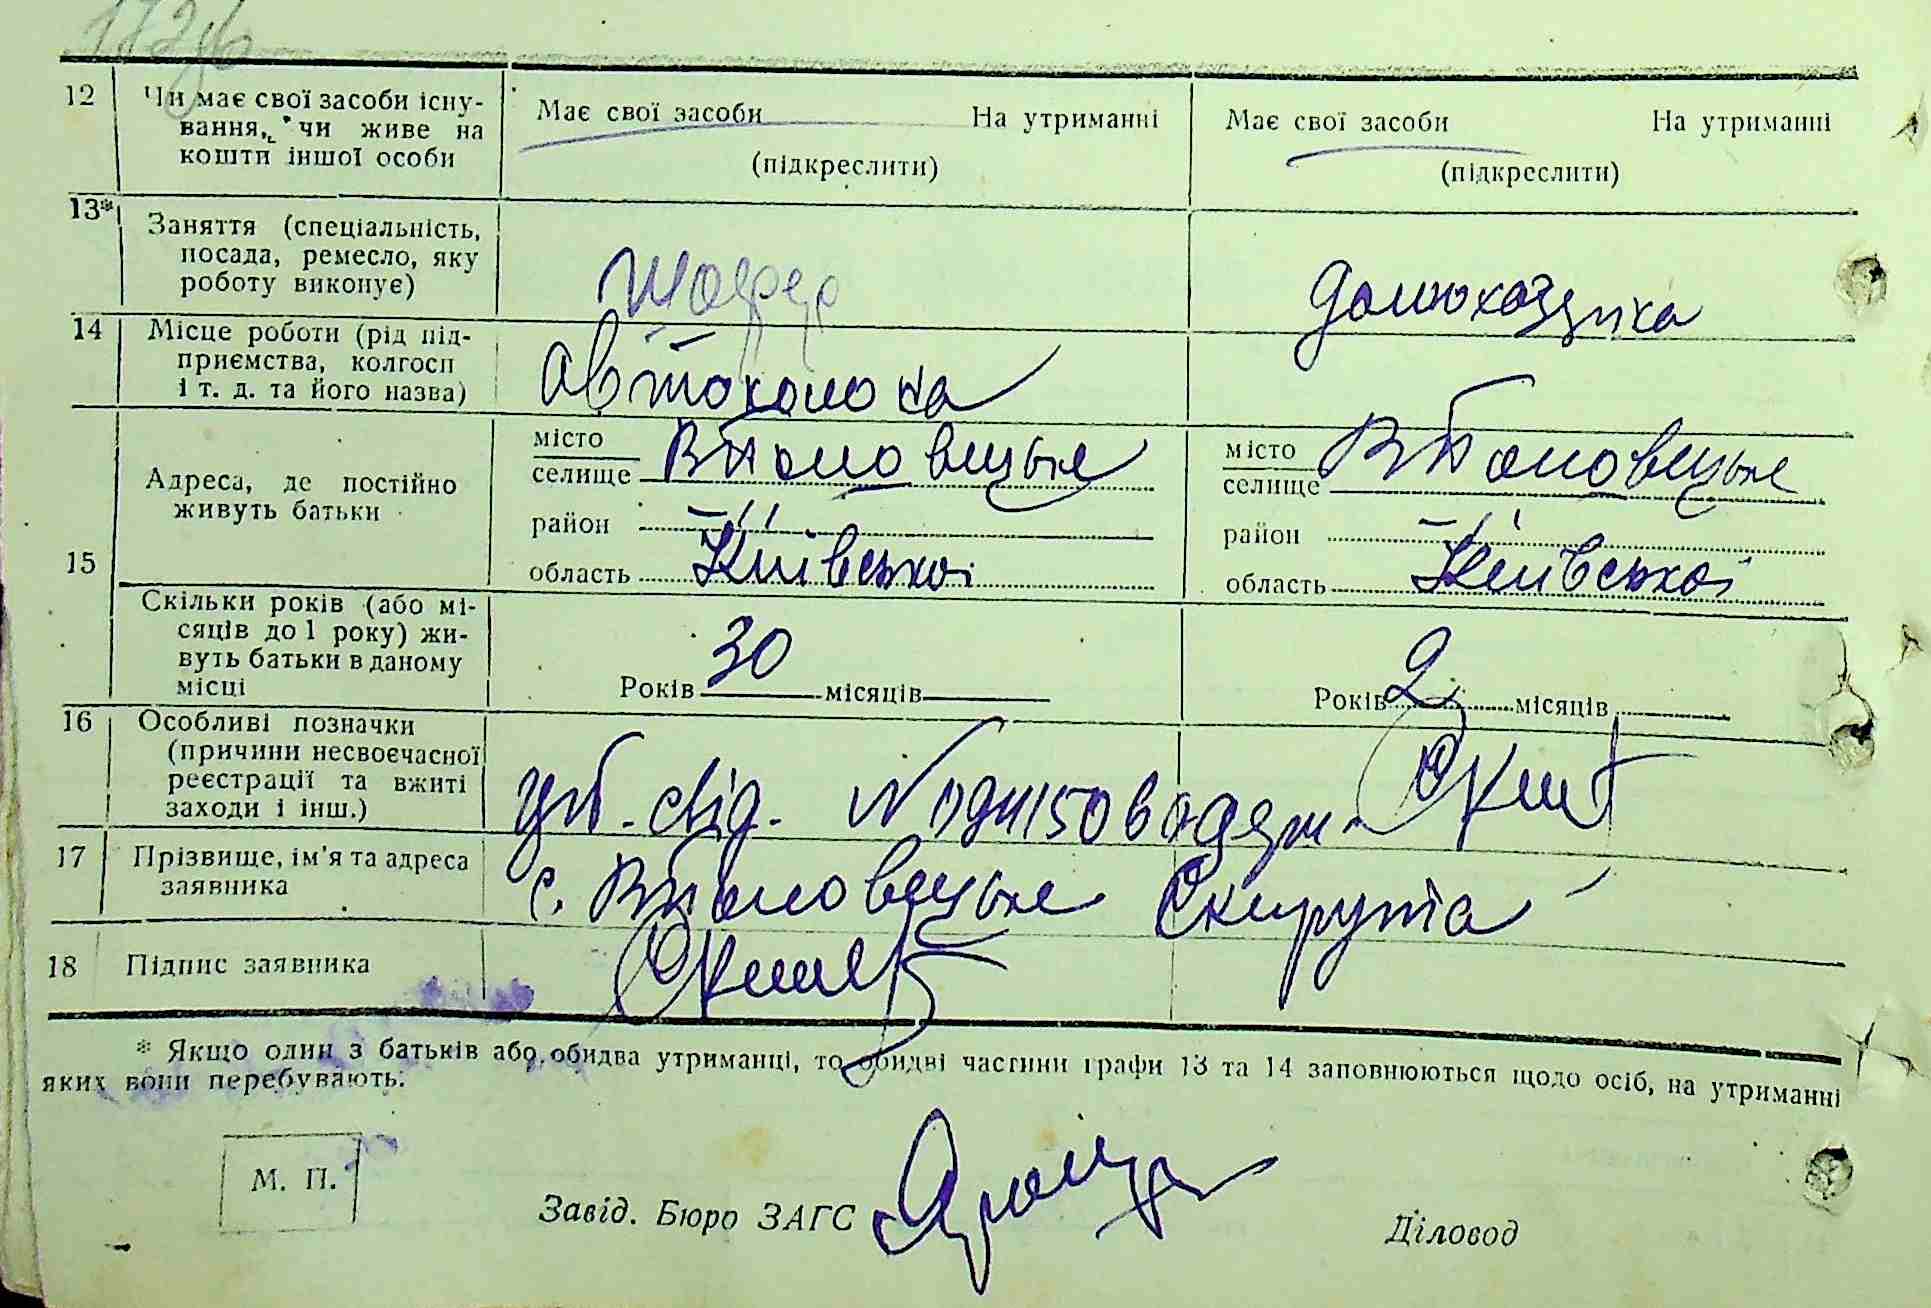 12 Чи має свої засоби існу-
вання, чи живе на
кошти іншої особи
Має свої засоби На утриманні
(підкреслити)
Має свої засоби На утриманні
(підкреслити)
13* Заняття (спеціальність,
посада, ремесло, яку
роботу виконує)
Шофер
домохазяйка
14 Місце роботи (рід під-
приємства, колгосп
і т. д. та його назва)
автоколона
15
Адреса, де постійно
живуть батьки
місто
селище В Половецьке
район
область Київської
місто
селище В Половецьке
район
область Київської
Скільки років (або мі-
сяців до 1 року) жи-
вуть батьки в даному
місці
Років 30 місяців
Років 2 місяців
16 Особливі позначки
(причини несвоєчасної
реєстрації та вжиті
заходи і інш.)
свід. №
17 Прізвище, ім'я та адреса
заявника
с. В Половецьке Скирута
18 Підпис заявника
* Якщо один з батьків або обидва утриманці, то обидві частини графи 13 та 14 заповнюються щодо осіб, на утриманні
яких вони перебувають.
М. П.
Завід. Бюро ЗАГС
Діловод